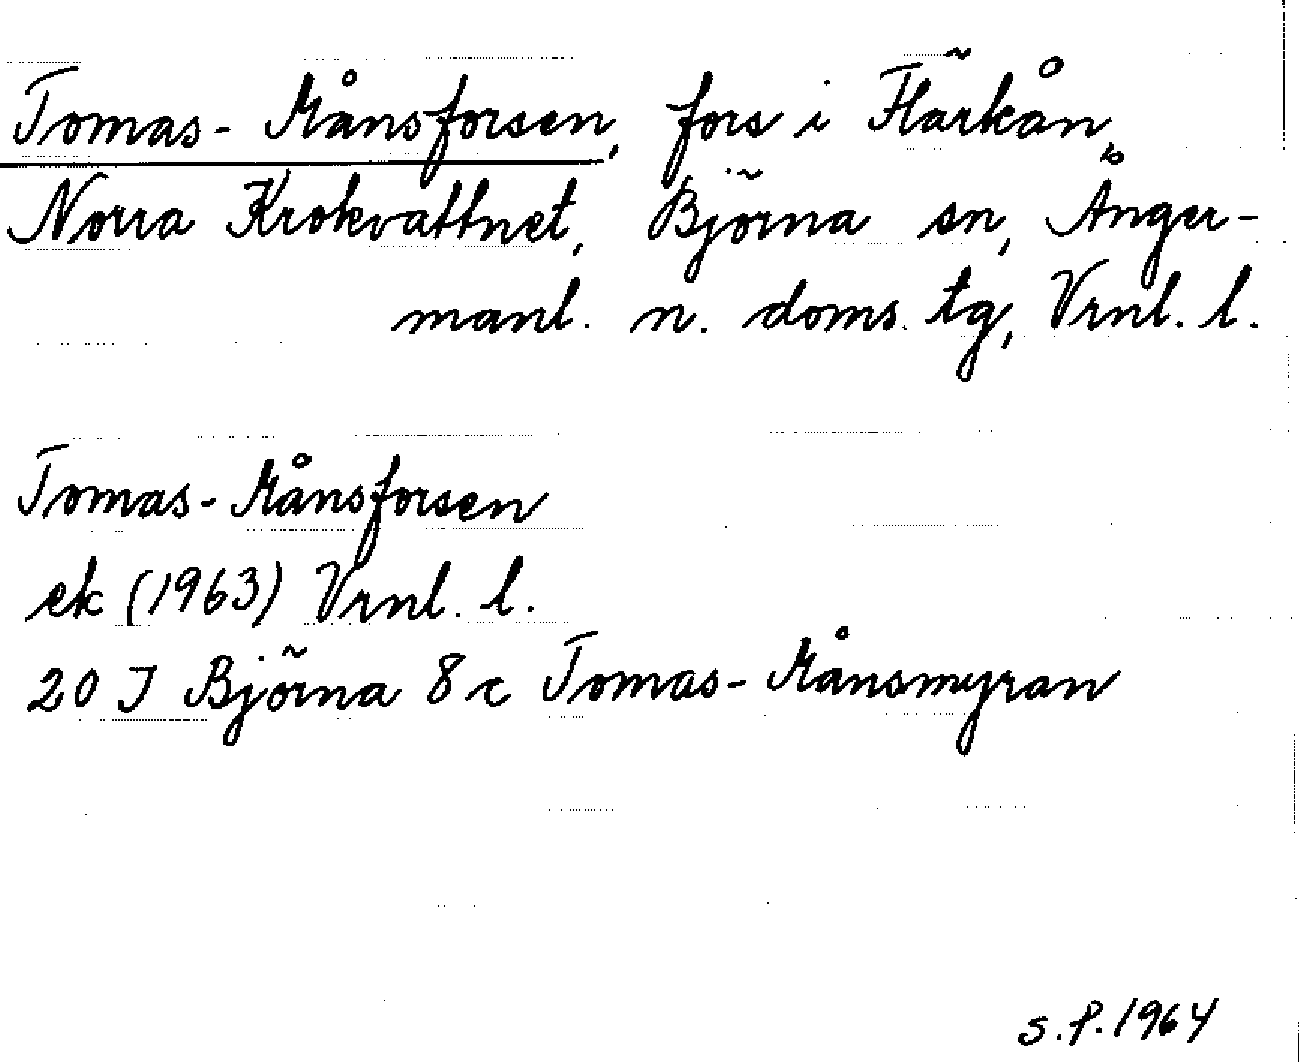 Tomas-Månsforsen, fors i Flärkån,
Norra Krokvattnet, Björna sn, Ånger-
manl. n. doms. tg, Vrnl. l.
Tomas-Månsforsen
ek (1963) Vrnl. l.
20 J Björna 8 c Tomas-Månsmyran
S.P. 1964